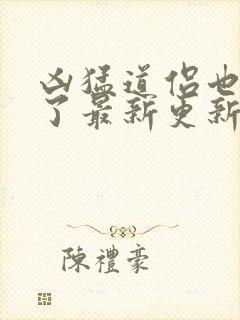 凶猛道侣也
了最新更新
陳禮豪